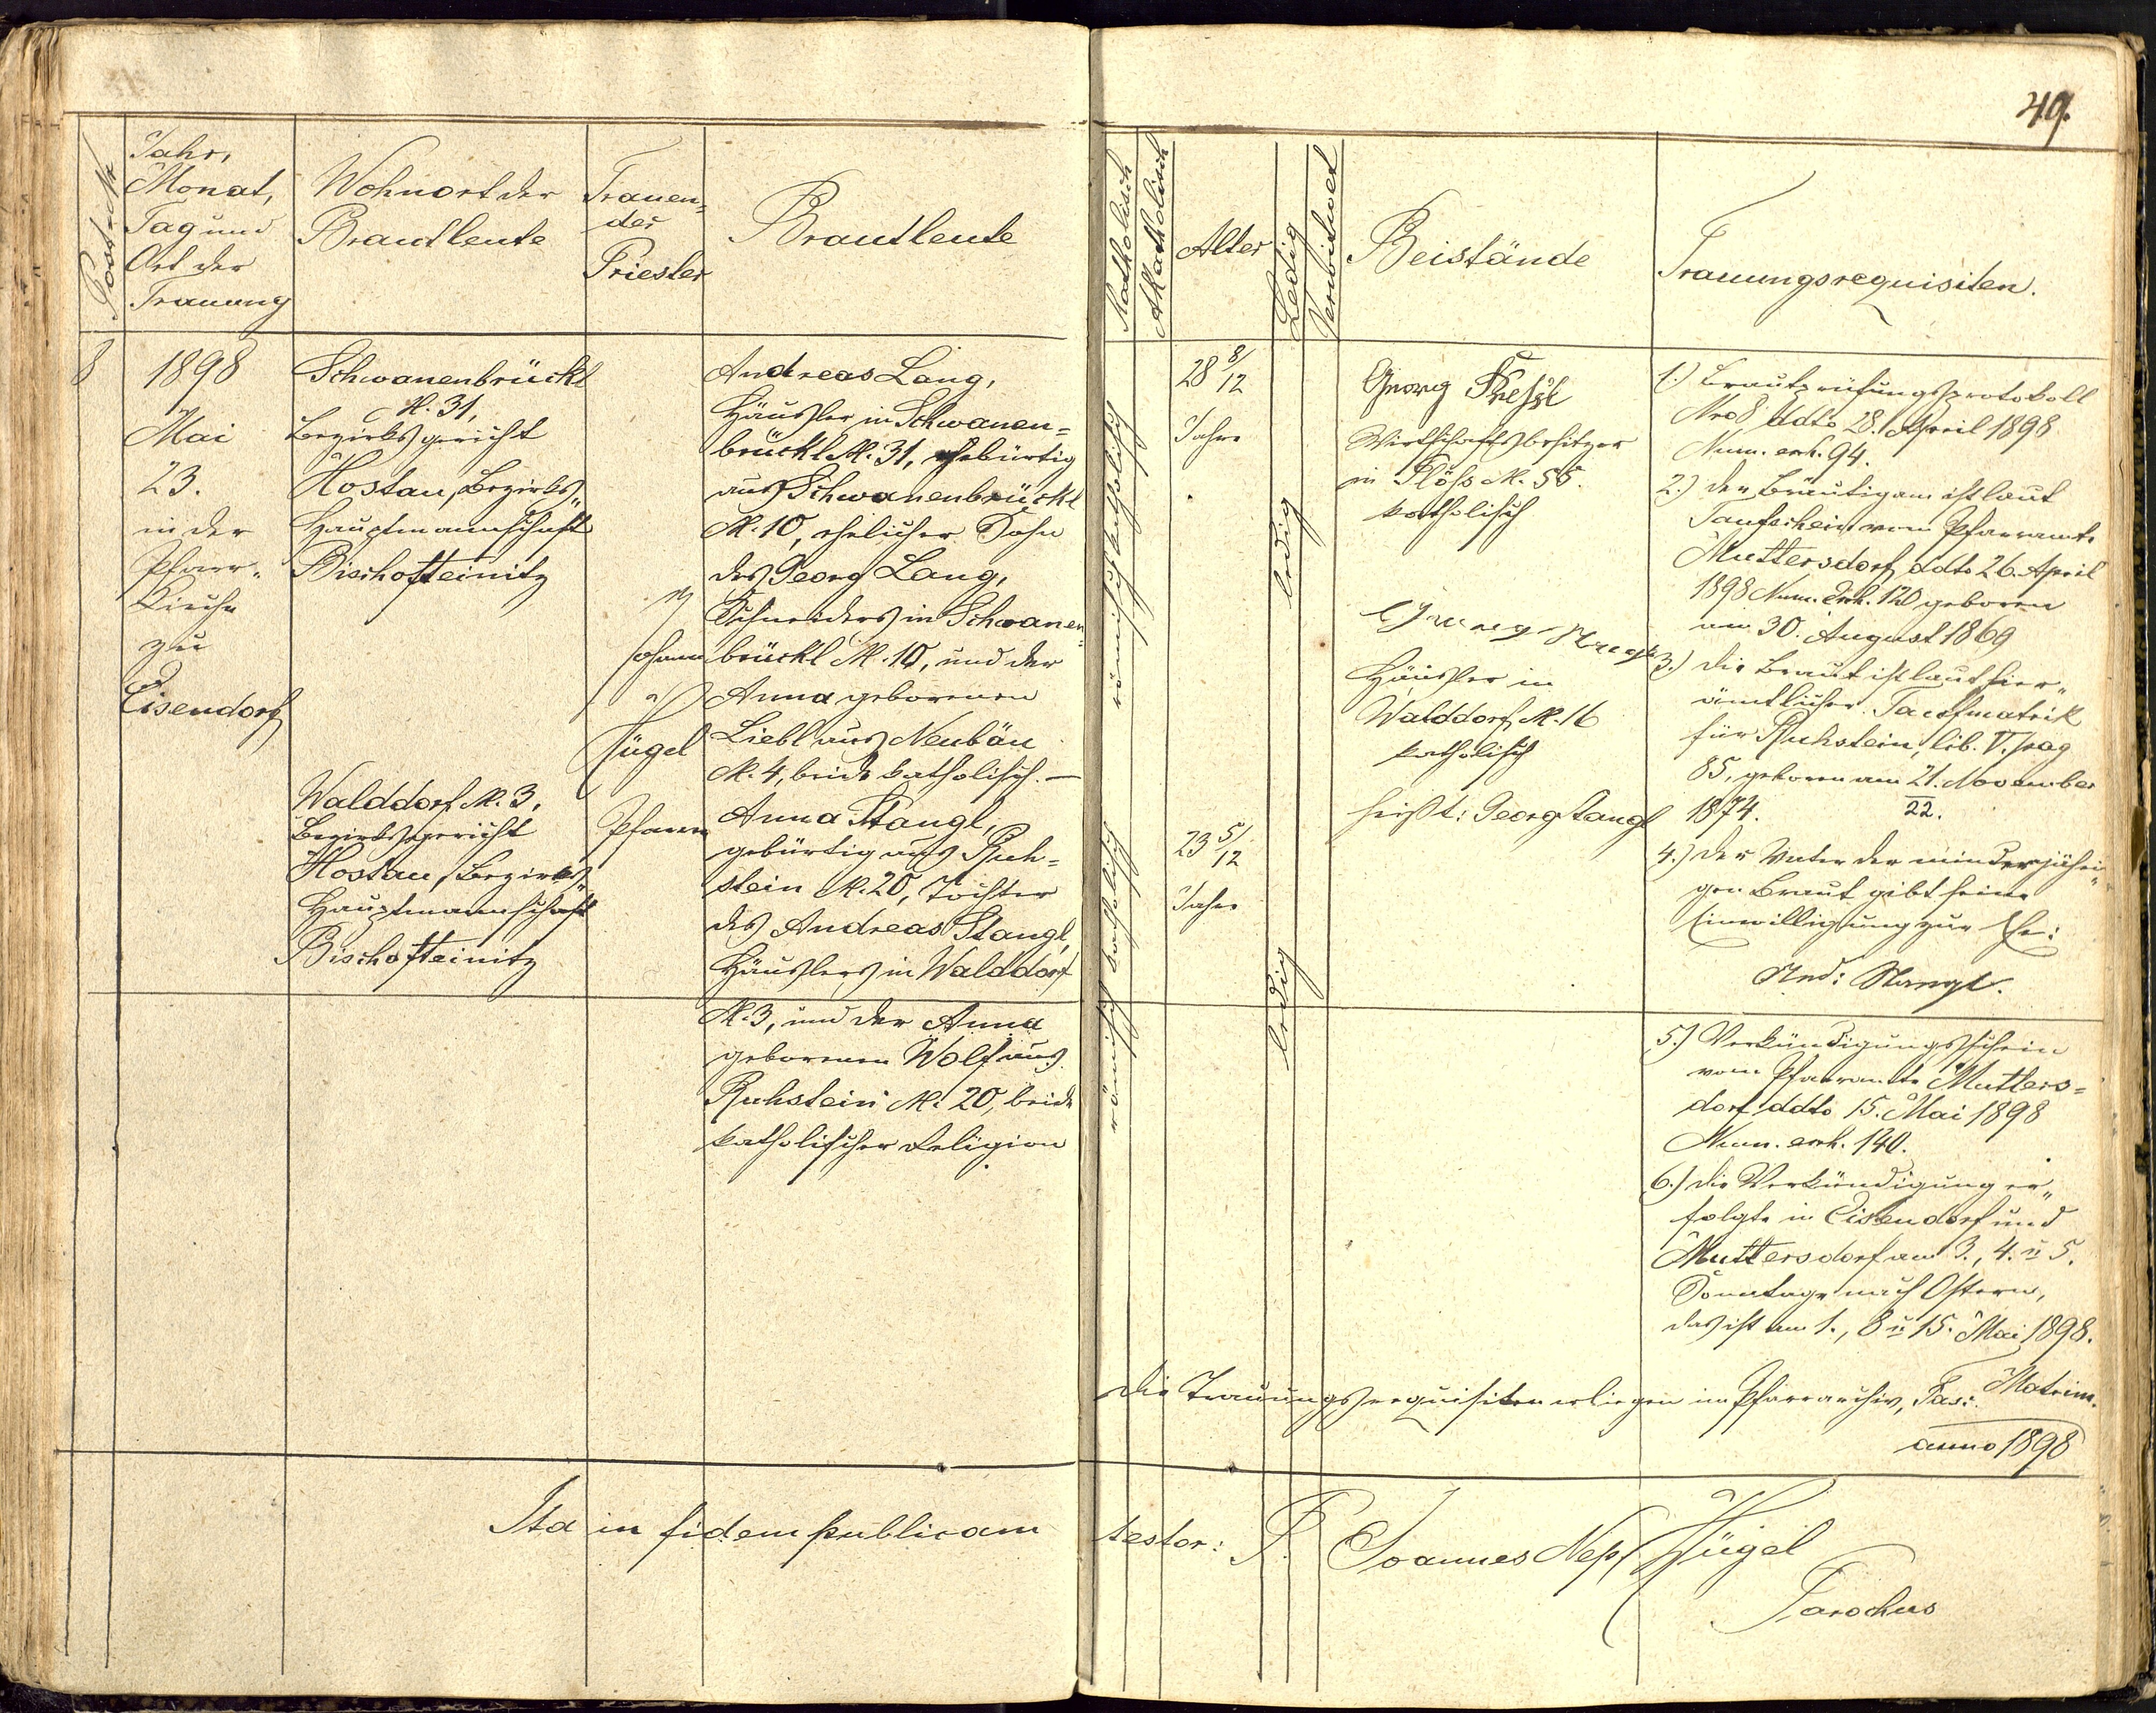 49.
Post-Nr
Jahr,
Monat,
Tag und
Ort der
Trauung
Wohnort der
Brautleute
Trauen=
der
Priester
Brautleute
Katholisch
Akatholisch
Alter
Ledig
Verwitwet
Beistände
Trauungsrequisiten.
8
1898
Mai
23.
in der
Pfarr-
kirche
zu
Eisendorf
Schwanenbrückl
N. 31,
Bezirksgericht
Hostau, Bezirks-
Hauptmannschaft
Bischofteinitz
Walddorf N. 3,
Bezirksgericht
Hostau, Bezirks-
Hauptmannschaft
Bischofteinitz
Johann
Hügel
Pfarrer
Andreas Lang,
Häusler in Schwanen=
brückl N. 31, gebürtig
aus Schwanenbrückl
N. 10, ehelicher Sohn
des Georg Lang,
Schneiders in Schwanen=
brückl N. 10, und der
Anna geborenen
Liebl aus Neubäu
N. 4, beide katholisch. —
Anna Stangl,
gebürtig aus Ruh=
stein N. 20, Tochter
des Andreas Stangl,
Häuslers in Walddorf
N. 3, und der Anna
geborenen Wolf aus
Ruhstein N. 20, beide
katholischer Religion
römisch katholisch
römisch katholisch
28 8/12
Jahre
23 5/12
Jahre
ledig
ledig
Georg
Wirtschaftsbesitzer
in Plöss N. 55.
katholisch
Georg
Häusler in
Walddorf N. 16
katholisch
heißt: Georg Stangl
1.) Brautprüfungsprotokoll
Nro 8 ddto 28. April 1898
Num. exh. 94.
2.) der Bräutigam ist laut
Taufschein vom Pfarramte
Muttersdorf ddto 26. April
1898 Num. Exh. 120 geboren
am 30. August 1869
3.) die Braut ist laut hier-
ämtlicher Taufmatrik
für Ruhstein, lib. V. pag
85, geboren am 21. November
1874. 22.
4.) der Vater der minderjähri-
gen Braut gibt seine
Einwilligung zur Ehe:
And: Stangl.
5.) Verkündigungsschein
vom Pfarramte Mutters=
dorf ddto 15. Mai 1898
Num. exh. 140.
6.) die Verkündigung er-
folgte in Eisendorf und
Muttersdorf am 3., 4. u 5.
Sonntage nach Ostern,
das ist am 1., 8 u 15. Mai 1898.
Die Trauungsrequisiten erliegen im Pfarrarchiv, Fas: Matrim.
anno 1898
Ita in fidem publicam testor: P. Joannes Nep. Hügel
Parochus